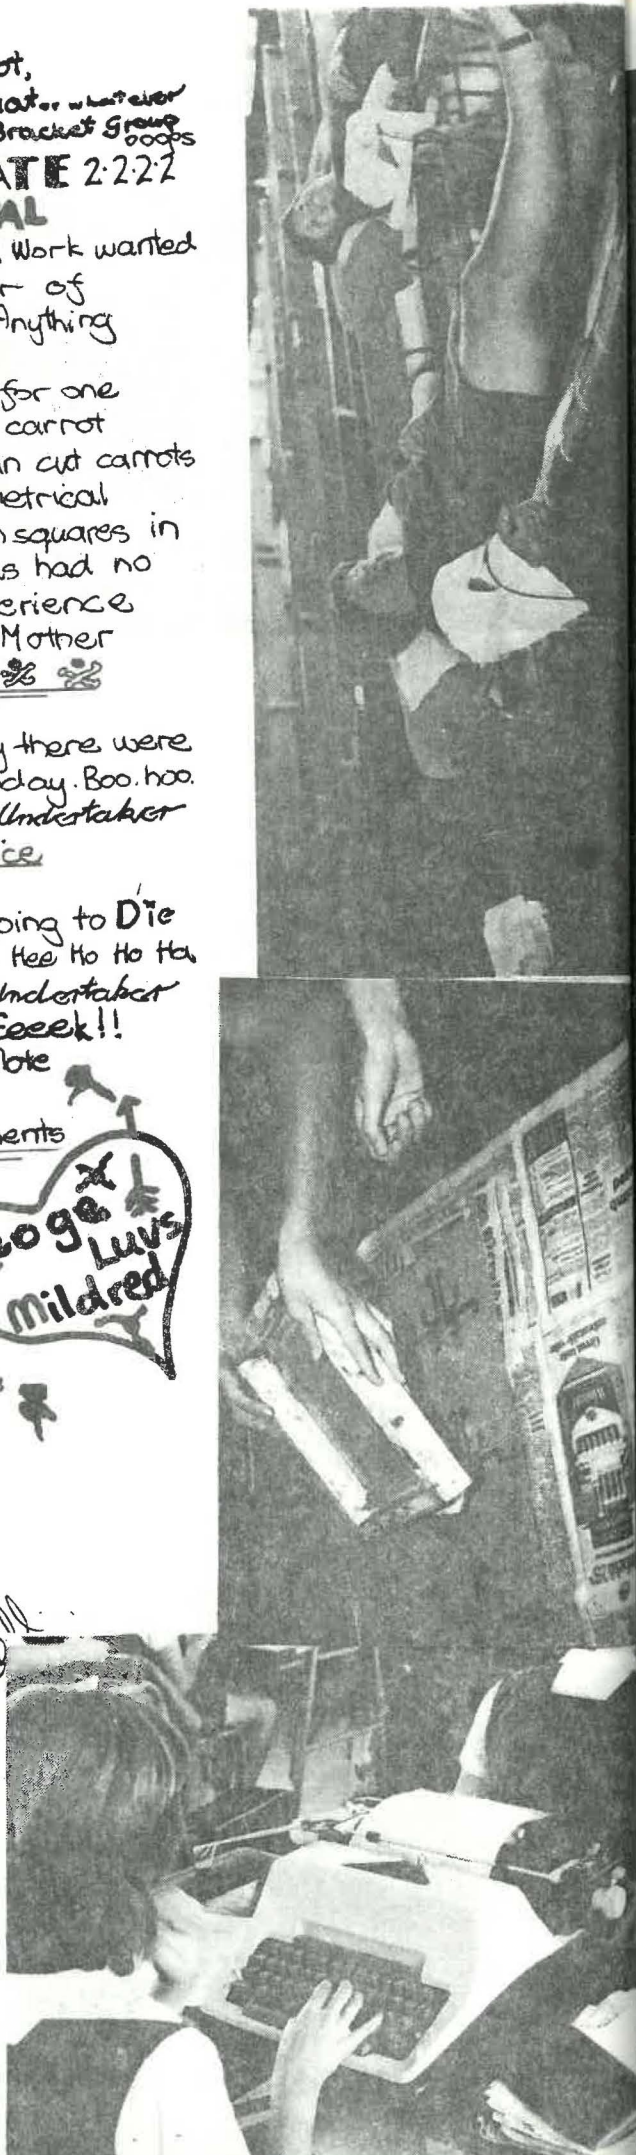 ot,
or whatever
Bracket Group
ooops
ATE 2·2·2·2
AL
Work wanted
r of
Anything
for one
carrot
n cut carrots
netrical
n squares in
s had no
erience
Mother
y there were
day. Boo. hoo.
Undertaker
ice
oing to Die
Hee Ho Ho Ha
Undertaker
Eeeek!!
Note
ents
X
oge
Luvs
Mildred